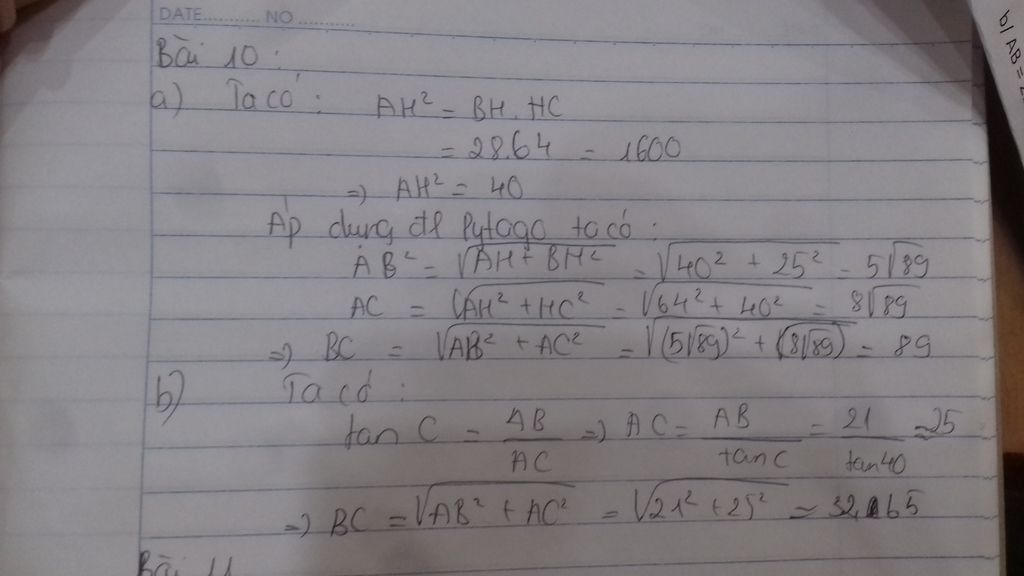 DATE............ NO ............
b) AB =
Bài 10 :
a) Ta có : AH² = BH . HC
= 28.64 = 1600
=) AH² = 40
Áp dụng đl Pytago ta có :
AB² = √AH² + BH² = √40² + 25² = 5√89
AC = √AH² + HC² = √64² + 40² = 8√89
=) BC = √AB² + AC² = √(5√89)² + (8√89) = 89
b) Ta có :
tan C = AB/AC =) AC = AB/tan C = 21/tan 40 ≈ 25
=) BC = √AB² + AC² = √21² + 25² ≈ 32,65
Bài 11